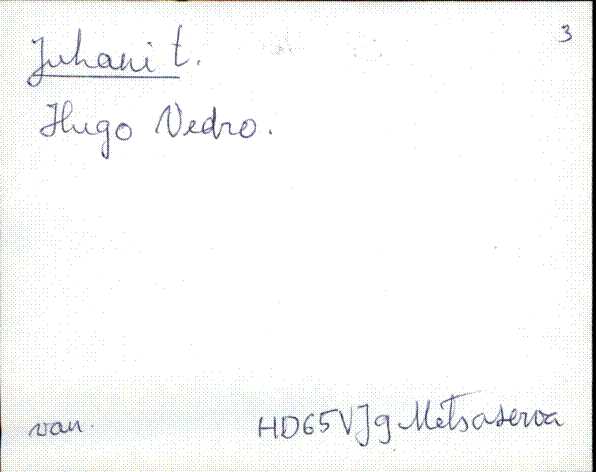 3
Juhani t.
Hugo Vedro.
van.
HD65VJg Metsaserva